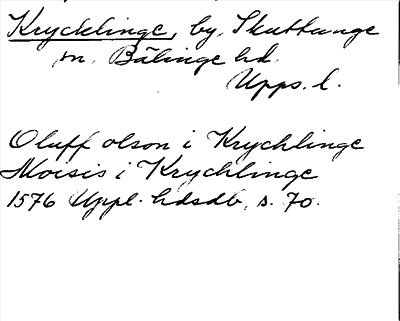 Krycklinge, by, Skuttunge
sn. Bälinge hd.
Upps. l.
Oluff olson i Krychlinge
Moisis i Krychlinge
1576 Uppl. hdsdb, s. 70.